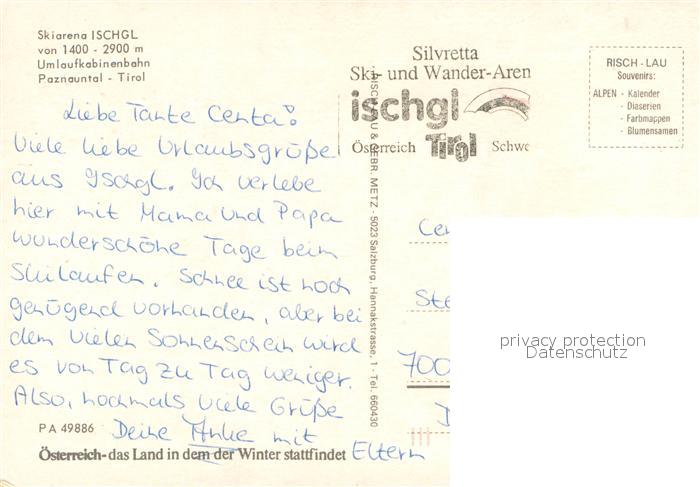 Skiarena ISCHGL
von 1400 - 2900 m
Umlaufkabinenbahn
Paznauntal - Tirol
Liebe Tante Centa!
Viele liebe Urlaubsgrüße
aus Ischgl. Ich verlebe
hier mit Mama und Papa
wunderschöne Tage beim
Skilaufen. Schnee ist noch
genügend vorhanden, aber bei
dem vielen Sonnenschein wird
es von Tag zu Tag weniger.
Also, nochmals viele Grüße
Deine Anke mit
Eltern
PA 49886
Österreich-das Land in dem der Winter stattfindet
Silvretta
Ski- und Wander-Aren
ischgl
Österreich Tirol Schwe
RISCH-LAU & GEBR. METZ - 5023 Salzburg, Hannakstrasse, 1 - Tel. 660430
RISCH - LAU
Souvenirs:
ALPEN - Kalender
- Diaserien
- Farbmappen
- Blumensamen
Cen
Ste
700
D
privacy protection
Datenschutz